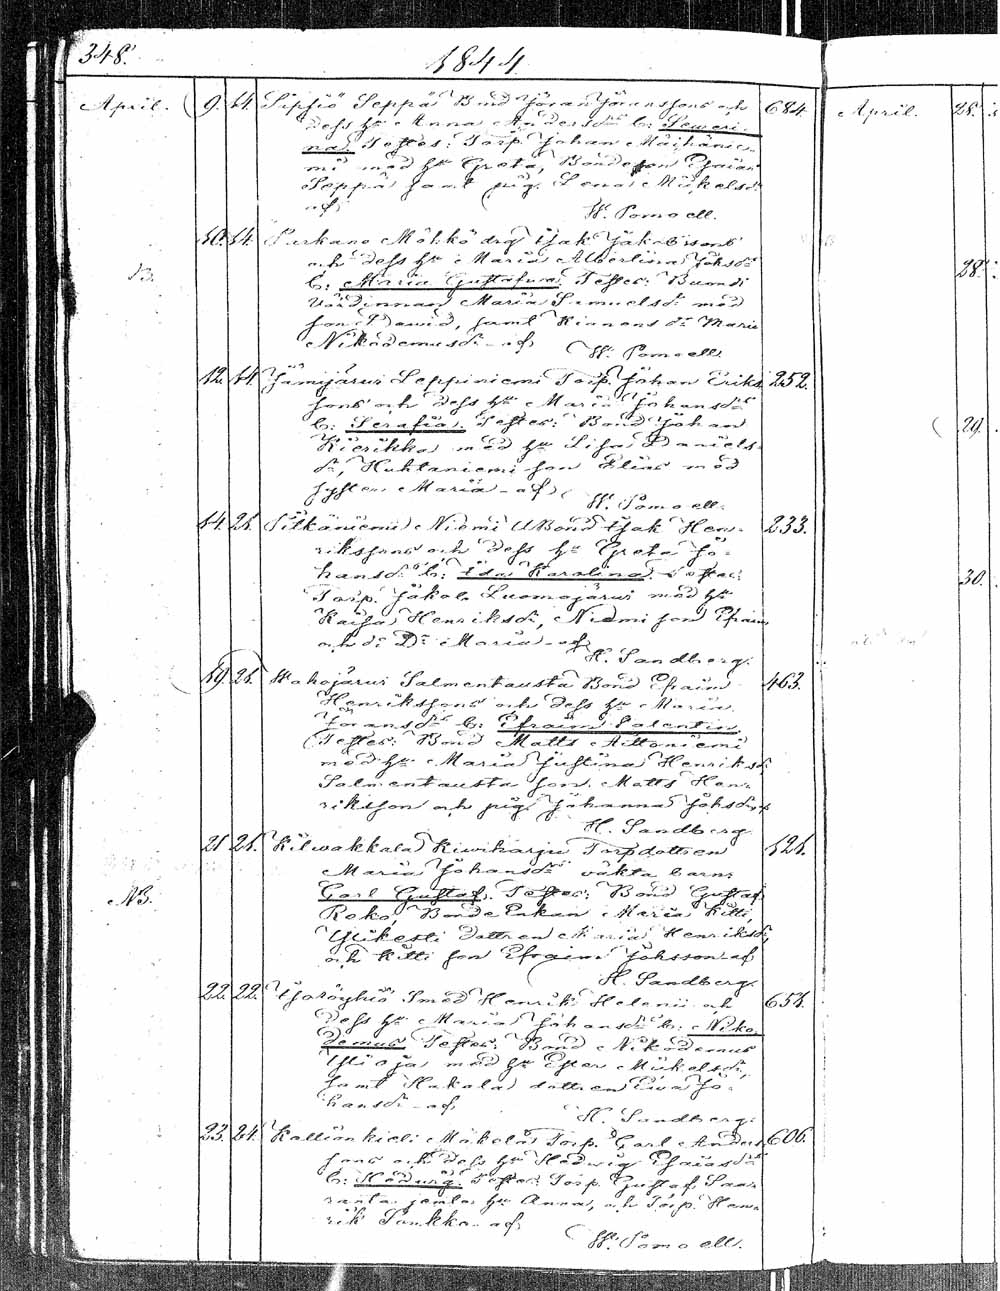 348.
1844.
April. 9. 14. Sipsiö Seppä Bond Göran Göransons och 684.
dess hu Anna Andersdr b: Severi
na. Testes: Torp. Johan
med hu Greta, Bondeson Esaias
Seppä samt pig. Lena Mickelsdr
af W. Pomoell.
10. 14. Parkano Mökkö drg Isak Jakobssons
N3. och dess hu Maria Albertina Johsdr
b: Maria Gustafva. Testes:
Värdinnan Maria Samuelsdr med
son David, samt Kinnons dr Maria
Nikodemusdr - af W. Pomoell.
12. 14. Jämijärvi Leppiniemi Torp. Johan Eriks 252.
sons och dess hu Maria Johansdr
b: Serafia. Testes: Bond Johan
Kierikka med hu Lisa Daniels
dr, Huhtaniemi son Elias med
syster Maria - af
W. Pomoell.
14. 21. Niemi Bond Isak Hen- 233.
rikssons och dess hu Greta Jo-
hansdr b: Ida Karolina. Testes:
Torp. Jakob Luomajärvi med hu
Kaisa Henriksdr, Niemi son Efraim
och di Dr Maria - af
H. Sandberg.
19. 21. Wahojärvi Salmentausta Bond Efraim 463.
Henrikssons och dess hu Maria
Göransdr b: Efraim Valentin
Testes: Bond Matts Aittoniemi
med hu Maria Justina Henriksdr
Salmentausta son Matts Hen-
riksson och pig. Johanna Johsdr, af
H. Sandberg.
21. 21. Kilwakkala Kiwikarju Torpdottren 121.
Maria Johansdr oäkta barn:
N3. Carl Gustaf. Testes: Bond Gustaf
Roko, Bonde Enkan Maria Kitti,
Ylikesti dottren Maria Henriksdr,
och Kitti son Efraim Johsson - af
H. Sandberg.
22. 22. Smed Henrik Helenii och 654.
dess hu Maria Johansdr b: Niko
demus Testes: Bond Nikodemus
Ylioja med hu Ester Mickelsdr,
samt Hakala dottren Eva Jo-
hansdr - af H. Sandberg.
23. 24. Kallionkieli Mäkelä Torp. Carl Anders 606.
sons och dess hu Hedwig Esaiasdr
b: Hedvig. Testes: Torp. Gustaf Saa-
ranta jemte hu Anna, och Torp. Hen-
rik Pankka - af
W. Pomoell.
April. 25.
28.
29.
30.